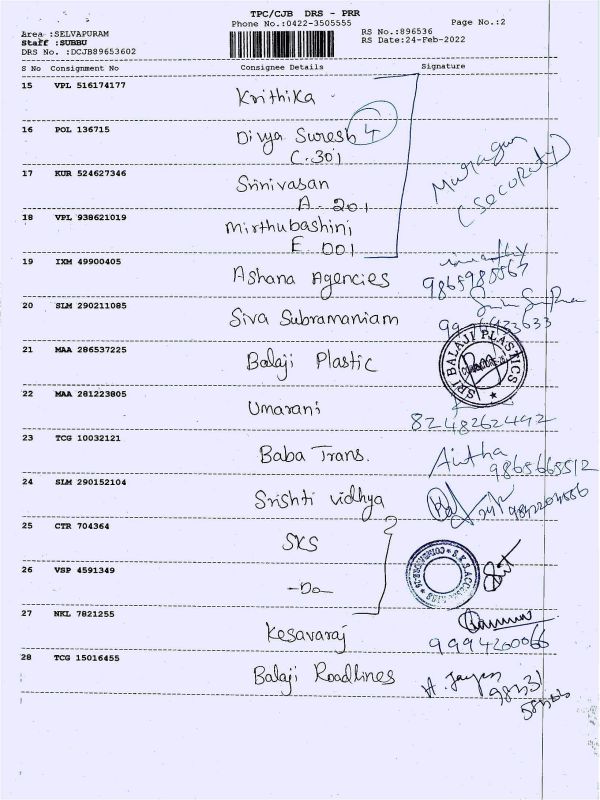 TPC/CJB DRS - PRR
Phone No.:0422-3505555
Page No.:2
Area :SELVAPURAM
Staff :SUBBU
DRS No. :DCJB89653602
RS No.:896536
RS Date:24-Feb-2022
S No Consignment No Consignee Details Signature
15 VPL 516174177 Krithika
16 POL 136715 Divya Suresh 4
C.301
17 KUR 524627346 Srinivasan
A.201
Murugan
(Security)
18 VPL 938621019 Mirthubashini
E.001
19 IXM 49900405 Ashana Agencies 9865985567
20 SLM 290211085 Siva Subramaniam
21 MAA 286537225 Balaji Plastic SRI BALAJI PLASTICS
22 MAA 281223805 Umarani 82482624492
23 TCG 10032121 Baba Trans. Aintha 9865665512
24 SLM 290152104 Srishti vidhya
25 CTR 704364 SKS
26 VSP 4591349 -Do-
27 NKL 7821255 Kesavaraj 9994260066
28 TCG 15016455 Balaji Roadlines